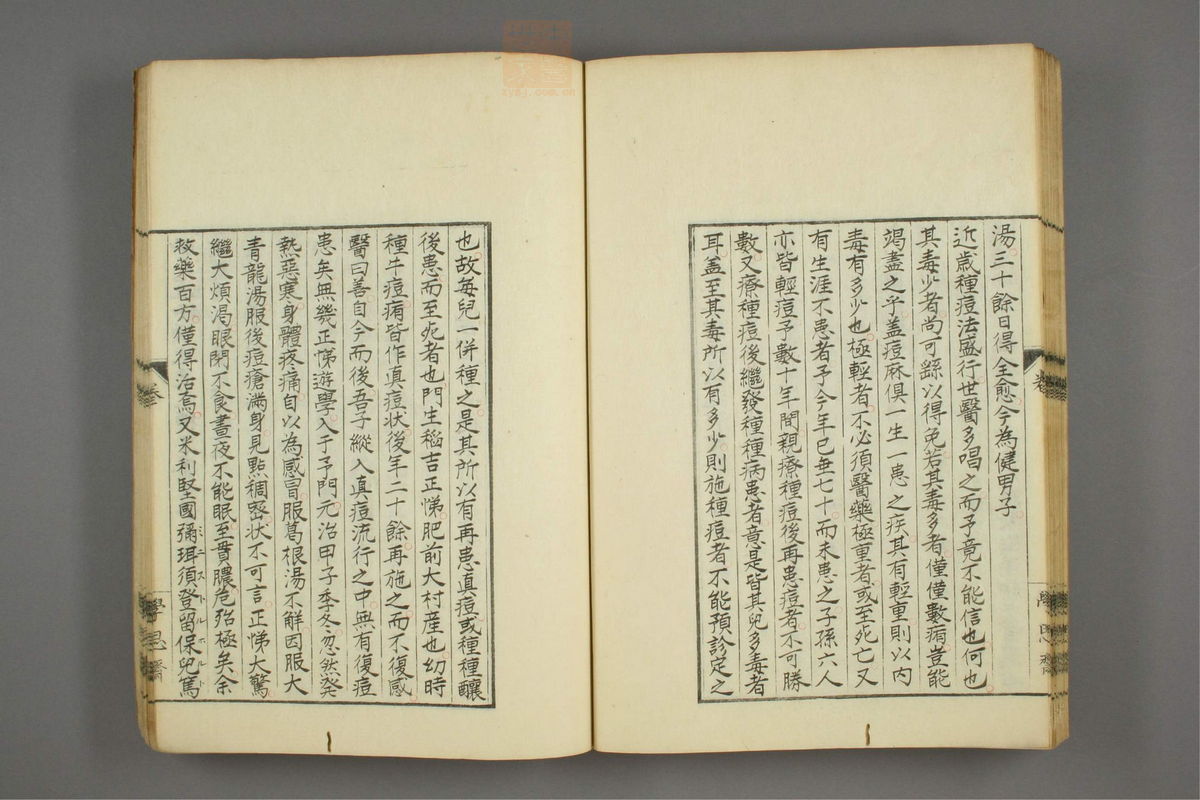 湯三十餘日得全愈今為健男子
近歳種痘法盛行世醫多唱之而予竟不能信也何也
其毒少者尚可繇以得免若其毒多者僅僅數痏豈能
竭盡之乎蓋痘麻俱一生一患之疾其有輕重則以内
毒有多少也極輕者不必須醫藥極重者或至死亡又
有生涯不患者予今年已垂七十而未患之子孫六人
亦皆輕痘予數十年間親療種痘後再患痘者不可勝
數又療種痘後繼發種種病患者竟是皆其兒多毒者
耳蓋至其毒所以有多少則施種痘者不能預診定之
也故每兒一併種之是其所以有再患真痘或種種釀
後患而至死者也門生稲吉正悌肥前大村産也幼時
種牛痘痏皆作真痘状後年二十餘再施之而不復感
醫曰善自今而後吾子縱入真痘流行之中無有復痘
患矣無幾正悌遊學入于予門元治甲子季冬忽然発
熱惡寒身體疼痛自以為感冒服葛根湯不解因服大
青龍湯服後痘瘡滿身見點稠密状不可言正悌大驚
繼大煩渇眼閉不食晝夜不能眠至貫膿危殆極矣余
救藥百方僅得治焉又米利堅國彌珥須登留保兒篤
ミニストルホルト
學思齋